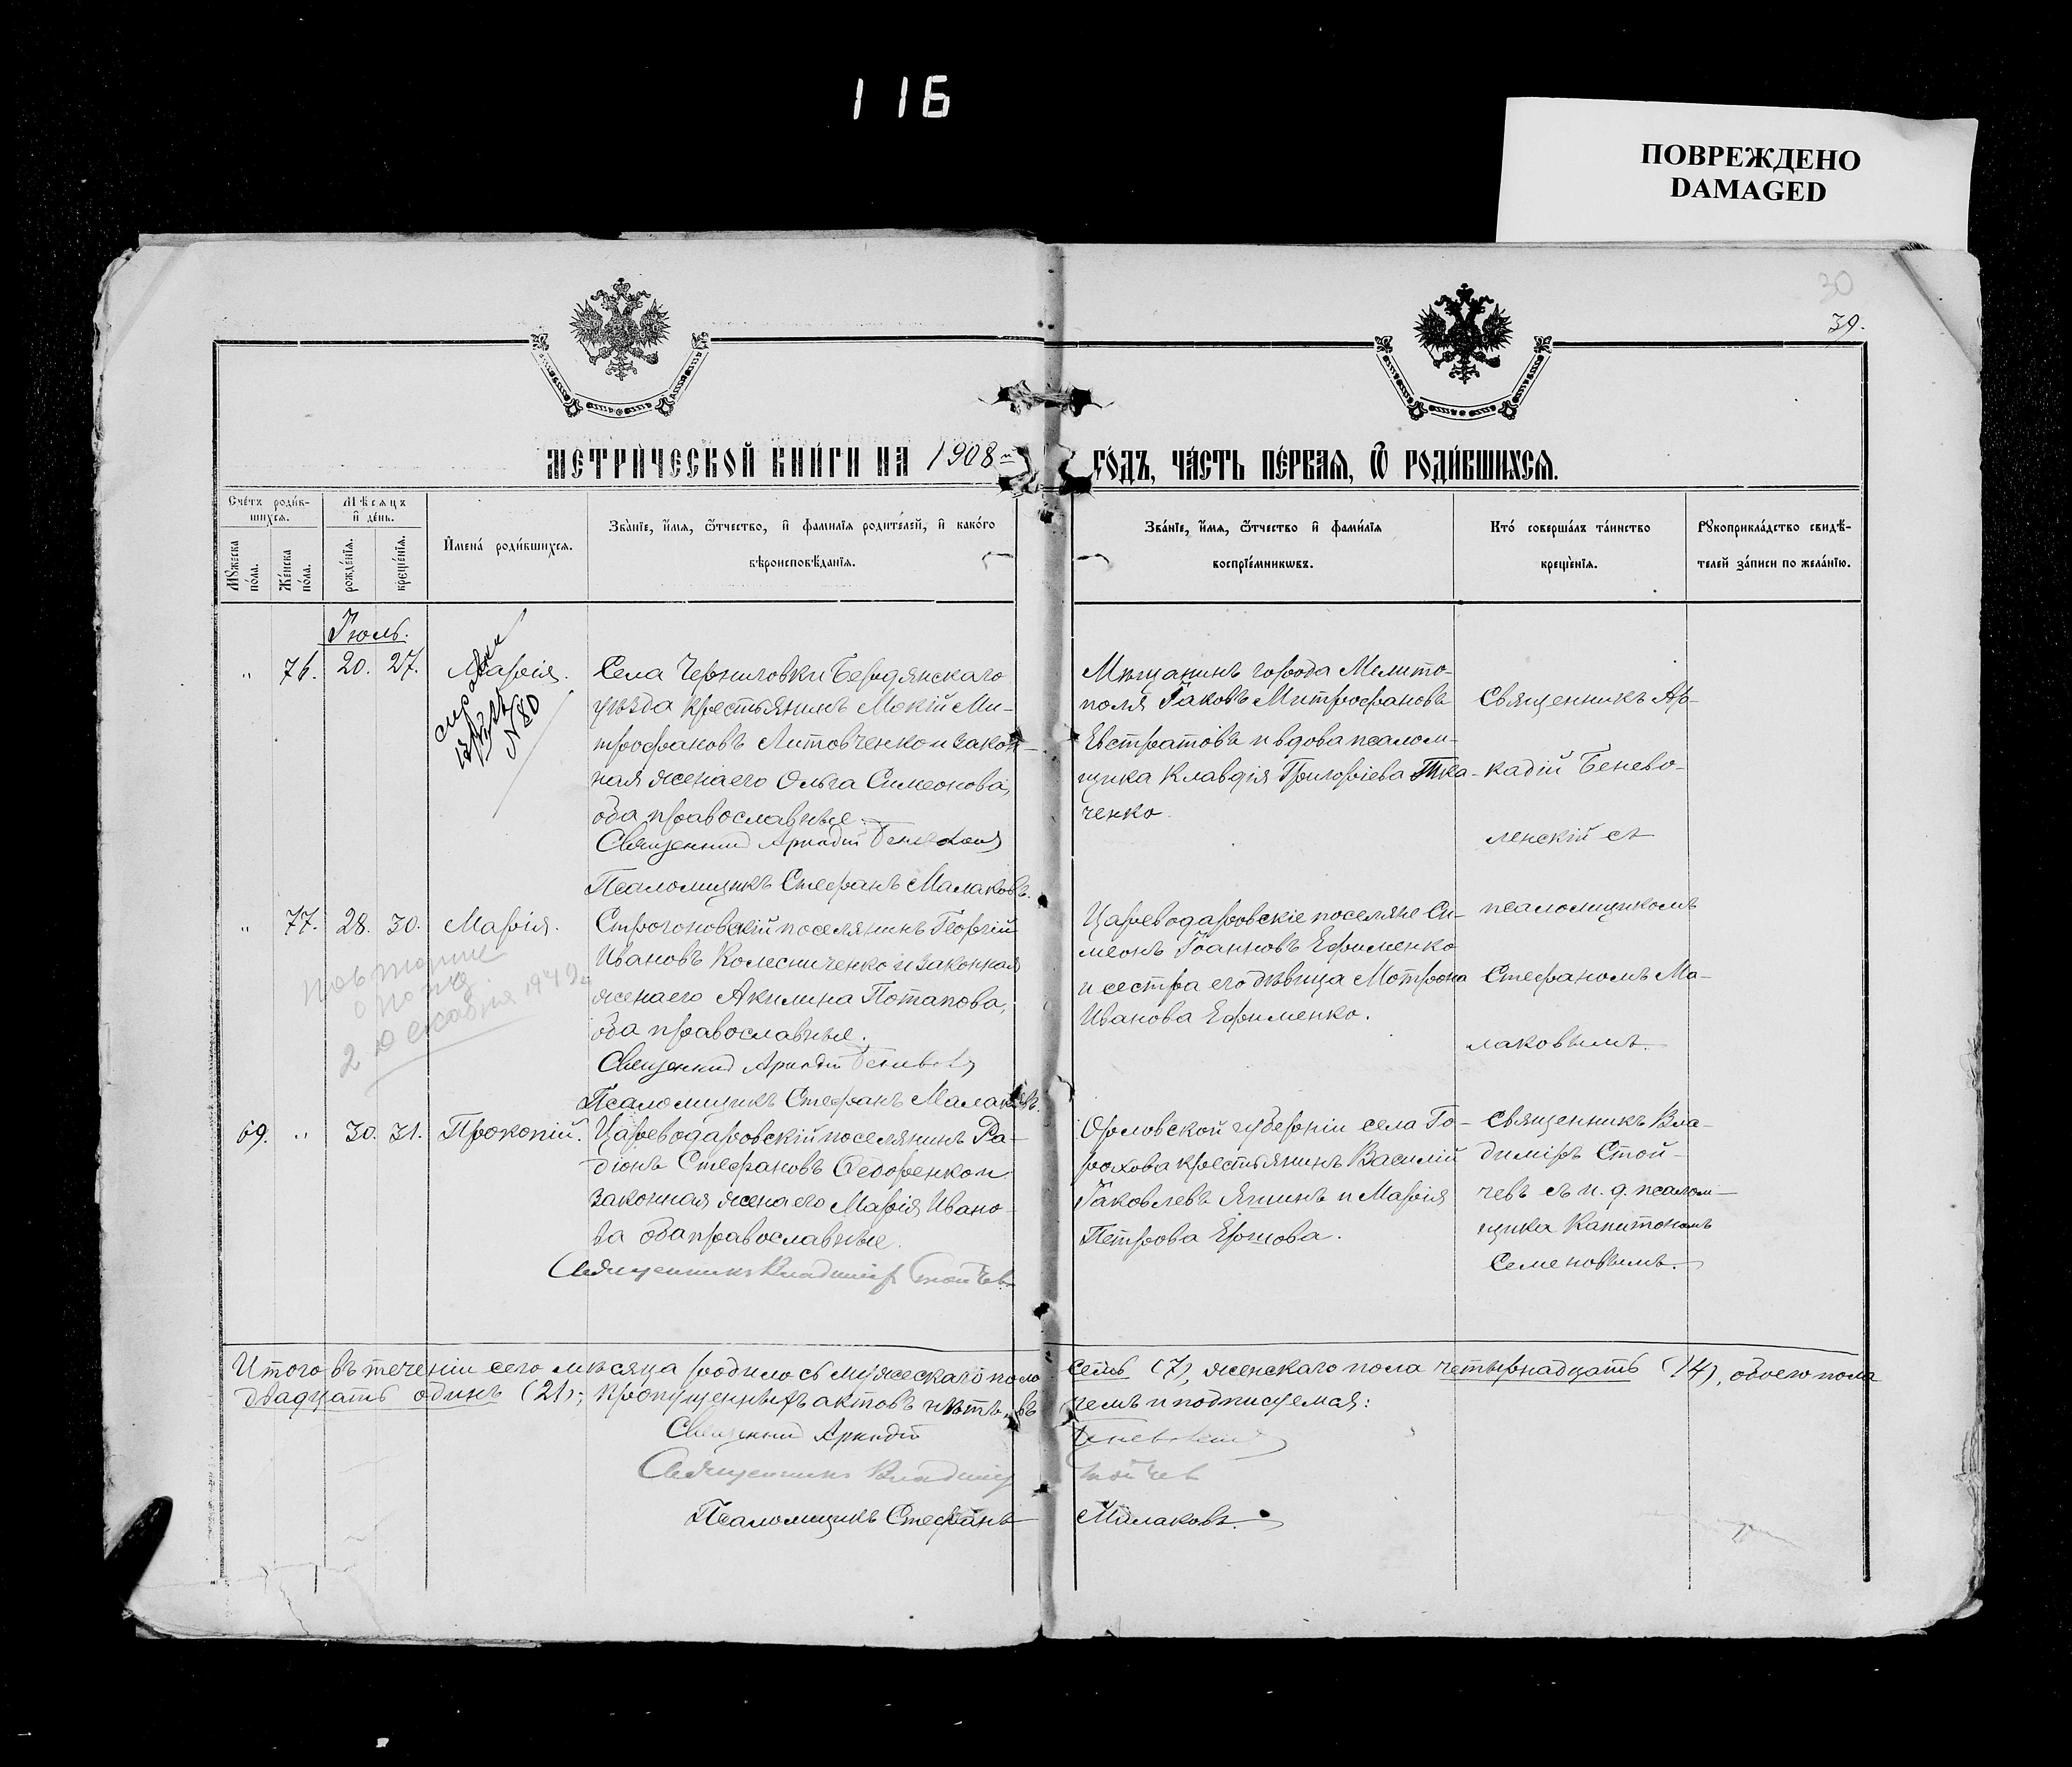 116
ПОВРЕЖДЕНО
DAMAGED
30
39.
МЕТРИ́ЧЕСКОЙ КНИ́ГИ НА 1908й ГО́ДЪ, ЧА́СТЬ ПЕ́РВАѦ, Ѿ РОДИ́ВШИХСѦ.
Сче́тъ роди́в-
шихсѧ.
Мѣ́сѧцъ
и҆ де́нь.
Мꙋ́жеска
по́ла.
Же́нска
по́ла.
рожде́нїѧ.
креще́нїѧ.
И҆мена̀ роди́вшихсѧ.
Зва́нїе, и҆́мѧ, ѻ҆́тчество, и҆ фами́лїѧ роди́телей, и҆ како́го
вѣроисповѣ́данїѧ.
Зва́нїе, и҆́мѧ, ѻ҆́тчество и҆ фами́лїѧ
воспрїе́мникѡвъ.
Кто̀ соверша́лъ та́инство
креще́нїѧ.
Рꙋкоприкла́дство свидѣ́-
телей за́писи по жела́нїю.
Іюль.
„ 76. 20. 27. Марія.
N 80
Села Черниговки Бердянскаго
уѣзда крестьянинъ Мокій Ми-
трофановъ Литовченко и закон-
ная жена его Ольга Симеонова,
оба православные.
Священник Аркадій
Псаломщикъ Стефанъ Малаковъ.
Мѣщанинъ города Мелито-
поля Іаковъ Митрофановъ
Евстратовъ и вдова псалом-
щика Клавдія Григоріева Тка-
ченко.
Священникъ Ар-
кадій Бенево-
ленскій съ
псаломщикомъ
Стефаномъ Ма-
лаковымъ.
„ 77. 28. 30. Марія.
2 декабря 1949г
Строгоновскій поселянинъ Георгій
Ивановъ Колесниченко и законная
жена его Акилина Потапова,
оба православные.
Священник Аркадій
Псаломщикъ Стефанъ Малаковъ.
Цареводаровскіе поселяне Си-
меонъ Іоанновъ Ефименко
и сестра его дѣвица Мотрона
Иванова Ефименко.
69. „ 30. 31. Прокопій.
Цареводаровскій поселянинъ Ра-
діонъ Стефановъ Ѳедоренко и
законная жена его Марія Ивано-
ва оба православные.
Священникъ Владимір Стойчев
Орловской губерніи села Го-
рохова крестьянинъ Василій
Іаковлевъ Яшинъ и Марія
Петрова Ершова.
Священникъ Вла-
диміръ Стой-
чевъ съ и. д. псалом-
щика Капитономъ
Семеновымъ.
Итого въ теченіи сего мѣсяца родилось мужескаго пола семь (7), женскаго пола четырнадцать (14), обоего пола
двадцать одинъ (21); пропущенныхъ актовъ нѣтъ, въ чемъ и подписуемся:
Священник Аркадій
Священникъ Владимір Стойчев
Псаломщикъ Стефанъ Малаковъ.